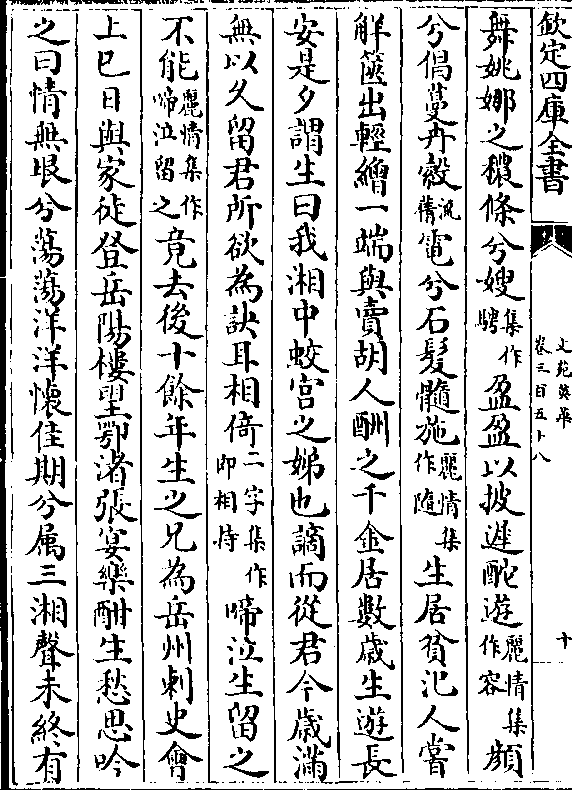 欽定四庫全書
文苑英華
卷三百五十八
十
舞姚娜之穠條兮嫂集作騁盈盈以披遲酡遊麗情集作容顔
兮倡蔓卉縠流蒨電兮石髮髓施麗情集作随生居貧氾人嘗
解篋出輕繒一端與賣胡人酬之千金居數歲生遊長
安是夕謂生曰我湘中蛟宫之娣也謫而從君今歲滿
無以久留君所欲為訣耳相倚二字集作即相持啼泣生留之
不能麗情集作啼泣留之竟去後十餘年生之兄為岳州刺史會
上巳日與家徒登岳陽樓望鄂渚張宴樂酣生愁思吟
之曰情無垠兮蕩蕩洋洋懐佳期兮属三湘聲未終有